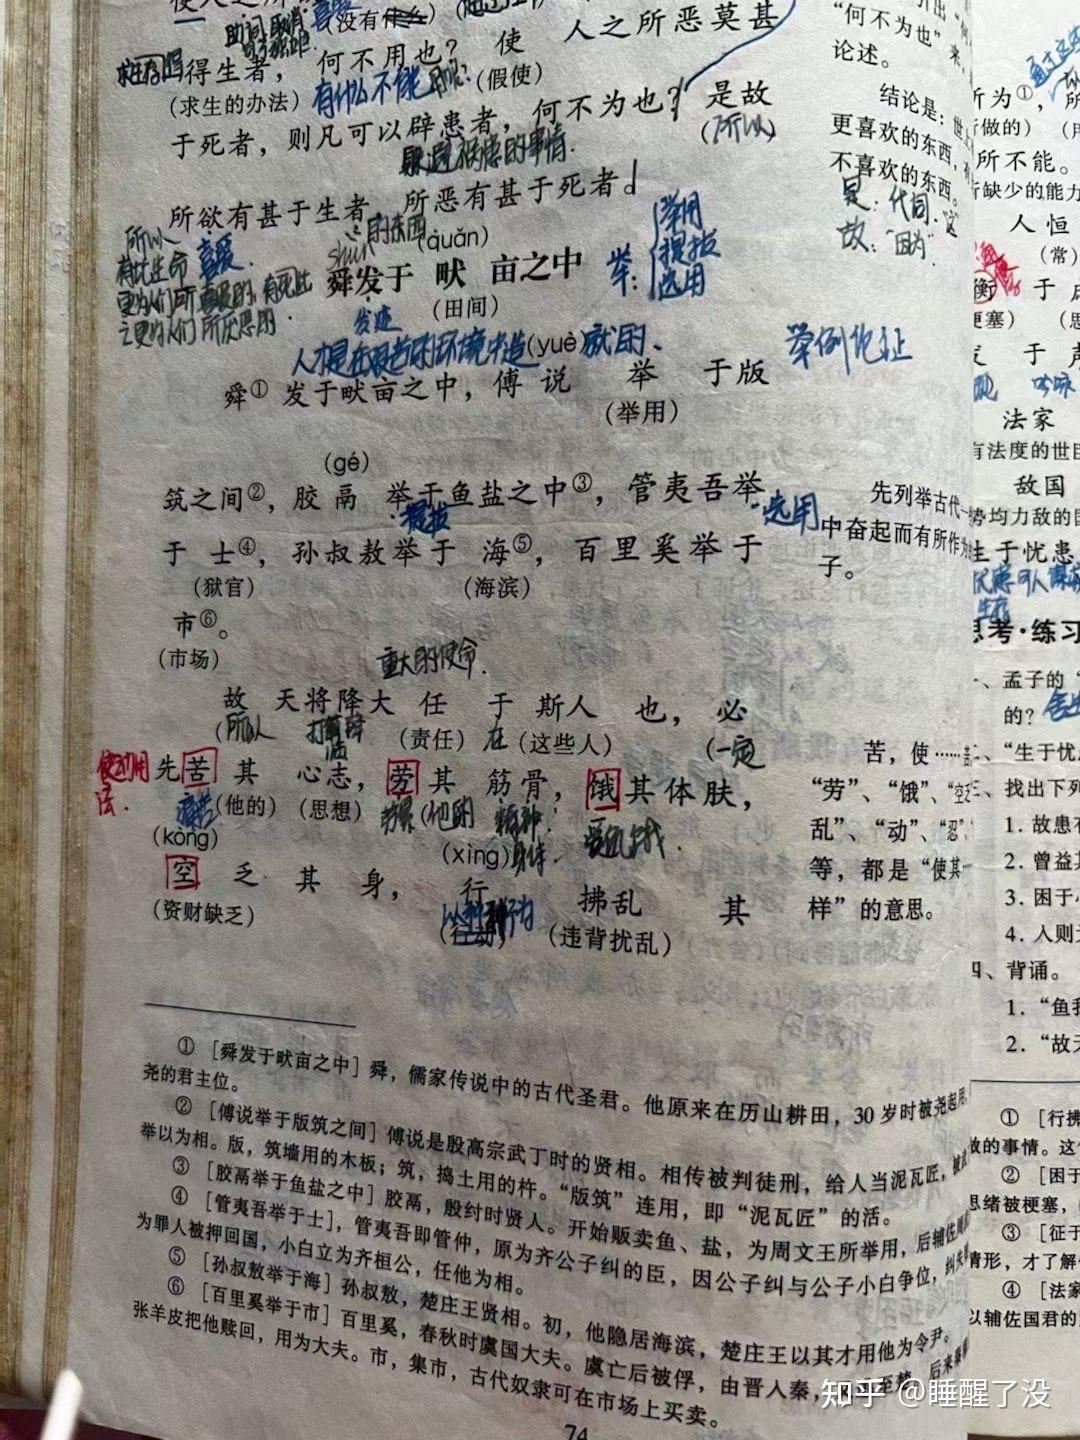 使人之所
(没有什么)
人之所恶莫甚
得生者，何不用也？使
(求生的办法) 有什么不能用呢？(假使)
于死者，则凡可以辟患者，何不为也？是故
(所以)
躲避祸患的事情.
所欲有甚于生者，所恶有甚于死者。
所以
有比生命 喜爱
的东西
(quǎn)
shùn
舜发于畎亩之中
(田间)
发迹
举：
举用
提拔
选用
人才是在艰苦的环境中造就的、
(yuè)
举例论证
舜① 发于畎亩之中，傅说举于版
(举用)
(gé)
筑之间②，胶鬲举于鱼盐之中③，管夷吾举
提拔
选用
于士④，孙叔敖举于海⑤，百里奚举于
(狱官) (海滨)
市⑥。
(市场)
重大的使命.
故天将降大任于斯人也，必
(所以 (责任) 在 (这些人) (一定
使动用法.
先苦其心志，劳其筋骨，饿其体肤，
痛苦 (他的) (思想) 劳累 (他的 精神.
(kòng) (xìng) 身体
空乏其身，行拂乱其
(资财缺乏) (行动) (违背扰乱)
"何不为也"来，
论述。
结论是：世
更喜欢的东西，
不喜欢的东西。
是：代词."这"
故："因为"
先列举古代
中奋起而有所作为
子。
苦，使……苦
"劳"、"饿"、"空乏
乱"、"动"、"忍"
等，都是"使其
样"的意思。
① [舜发于畎亩之中] 舜，儒家传说中的古代圣君。他原来在历山耕田，30岁时被尧起用，
尧的君主位。
② [傅说举于版筑之间] 傅说是殷高宗武丁时的贤相。相传被判徒刑，给人当泥瓦匠，被武
举以为相。版，筑墙用的木板；筑，捣土用的杵。"版筑"连用，即"泥瓦匠"的活。
③ [胶鬲举于鱼盐之中] 胶鬲，殷纣时贤人。开始贩卖鱼、盐，为周文王所举用，后辅佐周武
④ [管夷吾举于士]，管夷吾即管仲，原为齐公子纠的臣，因公子纠与公子小白争位，纠失败
为罪人被押回国，小白立为齐桓公，任他为相。
⑤ [孙叔敖举于海] 孙叔敖，楚庄王贤相。初，他隐居海滨，楚庄王以其才用他为令尹。
⑥ [百里奚举于市] 百里奚，春秋时虞国大夫。虞亡后被俘，由晋入秦，又逃至楚，后来秦穆
张羊皮把他赎回，用为大夫。市，集市，古代奴隶可在市场上买卖。
74
所为①，
所做的)
所不能。
所缺少的能力
人恒
(常)
衡于
梗塞)
发于声
法家
有法度的世臣
敌国
势均力敌的国
生于忧患
思考·练习
一、孟子的"
的？
二、"生于忧
三、找出下列
1. 故患有
2. 曾益其
3. 困于心
4. 人则
四、背诵。
1. "鱼我
2. "故天
① [行拂
做的事情。这
② [困于
思绪被梗塞，
③ [征于
情形，才了解
④ [法家
以辅佐国君的
知乎 @睡醒了没